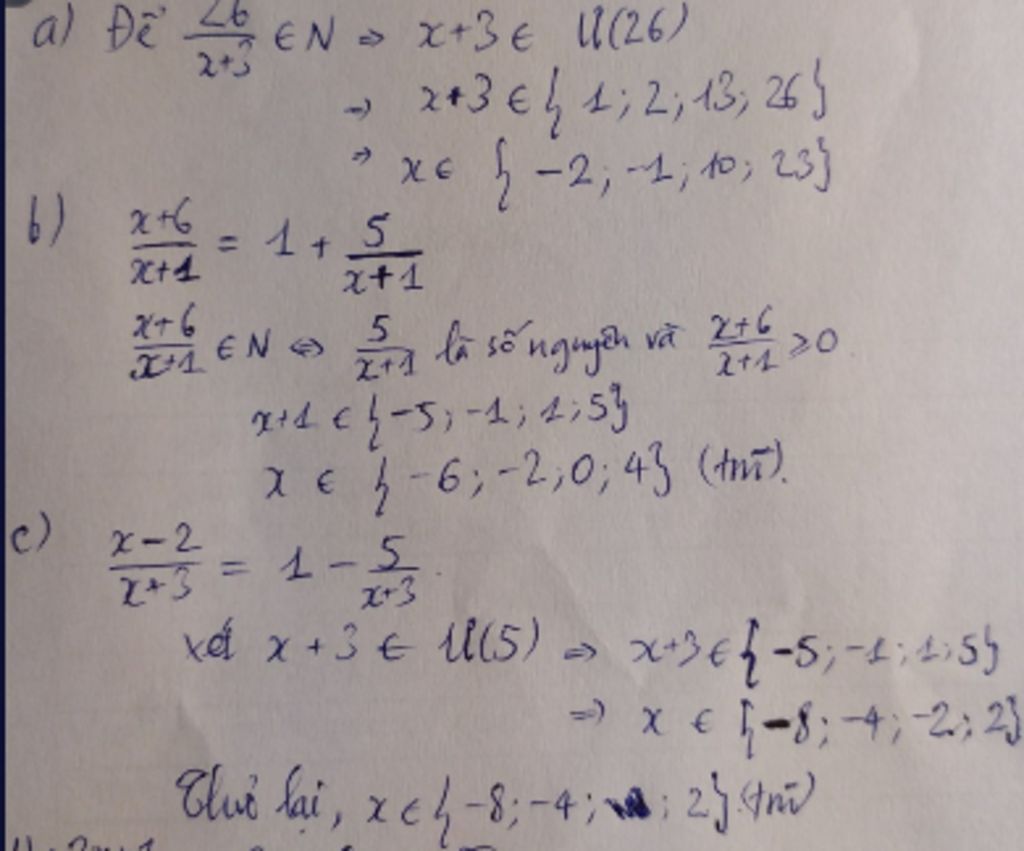 a) Để 26/x+3 ∈ N ⇒ x+3 ∈ Ư(26)
⇒ x+3 ∈ { 1; 2; 13; 26}
⇒ x ∈ { -2; -1; 10; 23}
b) x+6/x+1 = 1 + 5/x+1
x+6/x+1 ∈ N ⇔ 5/x+1 là số nguyên và x+6/x+1 ≥ 0
x+1 ∈ {-5; -1; 1; 5}
x ∈ { -6; -2; 0; 4} (tm).
c) x-2/x+3 = 1 - 5/x+3
xét x + 3 ∈ Ư(5) ⇒ x+3 ∈ {-5; -1; 1; 5}
⇒ x ∈ {-8; -4; -2; 2}
Thử lại, x ∈ {-8; -4; ; 2} (tm)